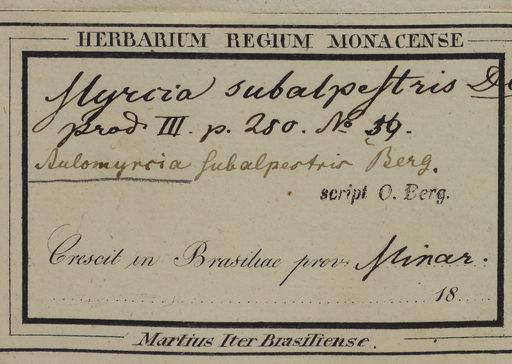 HERBARIUM REGIUM MONACENSE
Myrcia subalpestris DC
prod. III. p. 250. No 59.
Aulomyrcia subalpestris Berg.
script O. Berg.
Crescit in Brasiliae prov. Minar.
18
Martius Iter Brasiliense.